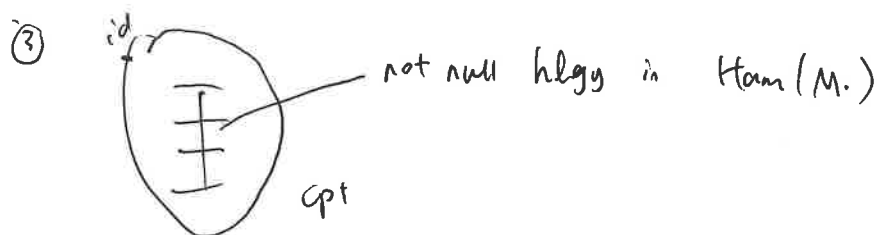 ③ id
not null hlgy in Ham(M.)
cpt